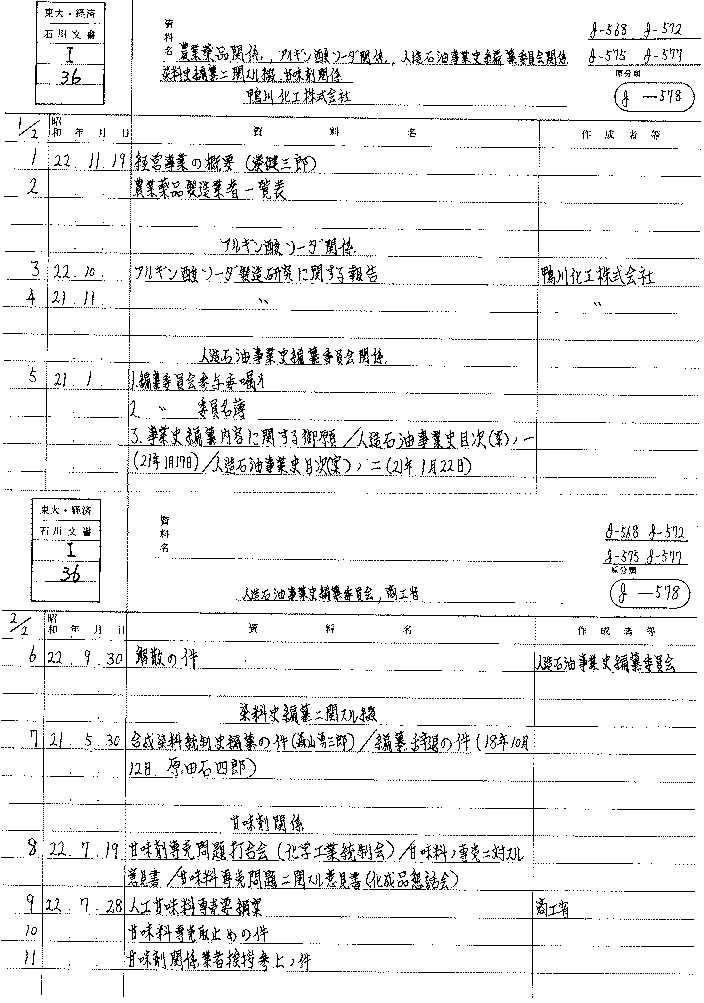 東大・経済
石川文書
I
36
資料名
農業薬品関係., アルギン酸ソーダ関係., 人造石油事業史編纂委員会関係
染料史編纂ニ関スル綴 甘味剤関係
鴨川化工株式会社
J-568 J-572
J-575 J-577
原分類
J —578
1/2 昭和 年 月 日 資料名 作成者等
1 22. 11. 19 経営事業の概要
2 農業薬品製造業者一覧表
アルギン酸ソーダ関係.
3 22. 10. アルギン酸ソーダ製造研究に関する報告 鴨川化工株式会社
4 21. 11. 〃 〃
人造石油事業史編纂委員会関係.
5 21. 1. 1.編纂委員会参与委嘱
2. 〃 委員名簿
3.事業史編纂内容に関する御願/人造石油事業史目次(案)ノ一
(21年1月17日)/人造石油事業史目次(案)ノ二(21年1月22日)
東大・経済
石川文書
I
36
資料名
J-568 J-572
J-575 J-577
原分類
J —578
人造石油事業史編纂委員会, 商工省
2/2 昭和 年 月 日 資料名 作成者等
6 22. 9. 30 解散の件 人造石油事業史編纂委員会
染料史編纂ニ関スル綴
7 21. 5. 30 合成染料統制史編纂の件/編纂の件(18年10月
12日 原田石四郎)
甘味剤関係
8 22. 7. 19 甘味剤専売問題打合会(化学工業統制会)/甘味料ノ専売ニ対スル
意見書/甘味料専売問題ニ関スル意見書(化成品懇話会)
9 22. 7. 28 人工甘味料専売要綱案 商工省
10 甘味料専売取止めの件
11 甘味剤関係業者挨拶参上ノ件